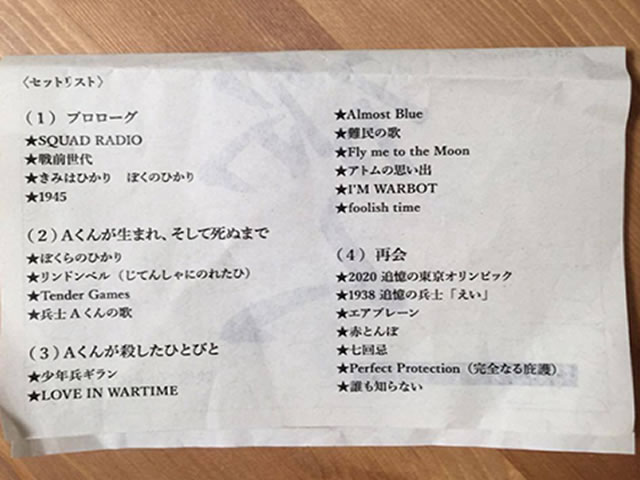 〈セットリスト〉
（１）プロローグ
★SQUAD RADIO
★戦前世代
★きみはひかり　ぼくのひかり
★1945
（２）Aくんが生まれ、そして死ぬまで
★ぼくらのひかり
★リンドンベル（じてんしゃにのれたひ）
★Tender Games
★兵士Aくんの歌
（３）Aくんが殺したひとびと
★少年兵ギラン
★LOVE IN WARTIME
★Almost Blue
★難民の歌
★Fly me to the Moon
★アトムの思い出
★I'M WARBOT
★foolish time
（４）再会
★2020 追憶の東京オリンピック
★1938 追憶の兵士「えい」
★エアプレーン
★赤とんぼ
★七回忌
★Perfect Protection（完全なる庇護）
★誰も知らない